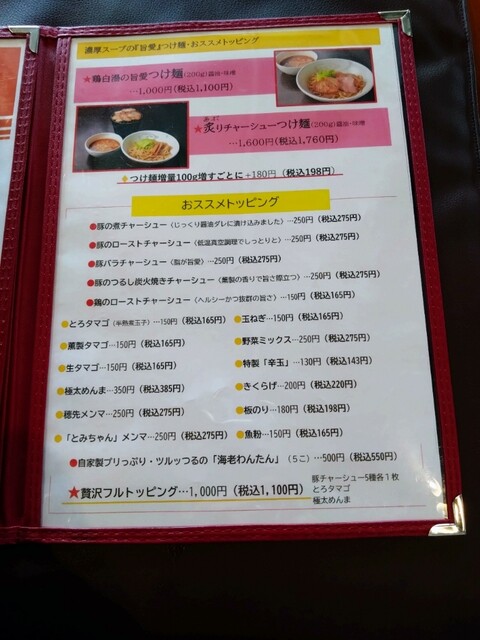 濃厚スープの『旨愛』つけ麺・おススメトッピング
★鶏白湯の旨愛つけ麺(200g)醤油・味噌
…1,000円(税込1,100円)
あぶ
★炙りチャーシューつけ麺(200g)醤油・味噌
…1,600円(税込1,760円)
◆つけ麺増量100g増すごとに+180円(税込198円)
おススメトッピング
●豚の煮チャーシュー〈じっくり醤油ダレに漬け込みました〉…250円(税込275円)
●豚のローストチャーシュー〈低温真空調理でしっとりと〉…250円(税込275円)
●豚バラチャーシュー〈脂が旨愛〉…250円(税込275円)
●豚のつるし炭火焼きチャーシュー〈薫製の香りで旨さ際立つ〉…250円(税込275円)
●鶏のローストチャーシュー〈ヘルシーかつ抜群の旨さ〉…150円(税込165円)
●とろタマゴ(半熟煮玉子)…150円(税込165円)
●薫製タマゴ…150円(税込165円)
●生タマゴ…150円(税込165円)
●極太めんま…350円(税込385円)
●穂先メンマ…250円(税込275円)
●「とみちゃん」メンマ…250円(税込275円)
●玉ねぎ…150円(税込165円)
●野菜ミックス…250円(税込275円)
●特製「辛玉」…130円(税込143円)
●きくらげ…200円(税込220円)
●板のり…180円(税込198円)
●魚粉…150円(税込165円)
●自家製プリっぷり・ツルッつるの「海老わんたん」(5こ)…500円(税込550円)
★贅沢フルトッピング…1,000円(税込1,100円)
豚チャーシュー5種各1枚
とろタマゴ
極太めんま